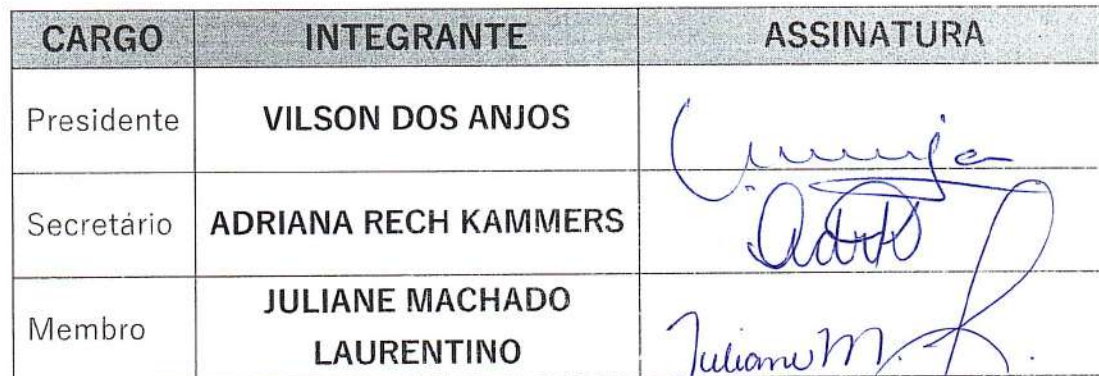 CARGO INTEGRANTE ASSINATURA
Presidente VILSON DOS ANJOS
Secretário ADRIANA RECH KAMMERS
Membro JULIANE MACHADO
LAURENTINO
Juliane M.